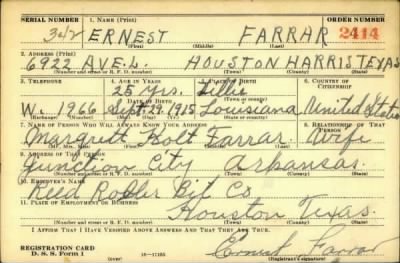 SERIAL NUMBER 1. NAME (Print) ORDER NUMBER
342 ERNEST FARRAR 2414
(First) (Middle) (Last)
2. ADDRESS (Print)
6922 AVE.L. HOUSTON HARRIS TEXAS
(Number and street or R. F. D. number) (Town) (County) (State)
3. TELEPHONE 4. AGE IN YEARS 5. PLACE OF BIRTH 6. COUNTRY OF CITIZENSHIP
25 Yrs. Lillie
DATE OF BIRTH (Town or county)
W. 1966 Sept 29. 1915 Louisiana United States
(Exchange) (Number) (Mo.) (Day) (Yr.) (State or country)
7. NAME OF PERSON WHO WILL ALWAYS KNOW YOUR ADDRESS 8. RELATIONSHIP OF THAT PERSON
Margaret Holt Farrar. Wife
(Mr., Mrs., Miss) (First) (Middle) (Last)
9. ADDRESS OF THAT PERSON
Junction City Arkansas.
(Number and street or R. F. D. number) (Town) (County) (State)
10. EMPLOYER'S NAME
Reed Roller Bit Co
11. PLACE OF EMPLOYMENT OR BUSINESS
Houston Texas.
(Number and street or R. F. D. number) (Town) (County) (State)
I AFFIRM THAT I HAVE VERIFIED ABOVE ANSWERS AND THAT THEY ARE TRUE.
REGISTRATION CARD
D. S. S. Form 1 Ernest Farrar
(Registrant's signature)